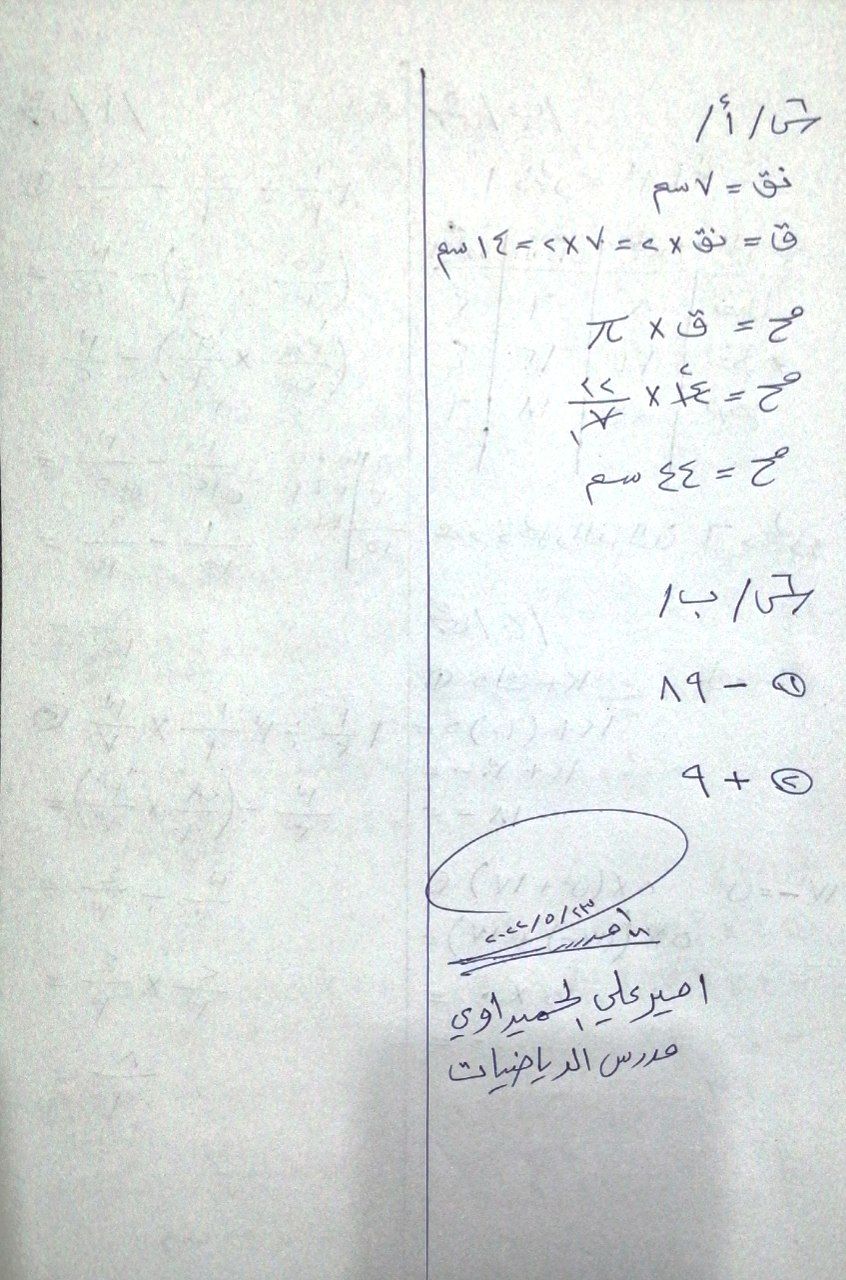 س٦/أ/
نق = ٧ سم
ق = نق × ٢ = ٧ × ٢ = ١٤ سم
مح = ق × π
مح = ١٤ × ٢٢/٧
٢
١
مح = ٤٤ سم
س٦/ب/
① - ٨٩
② + ٩
٢٠٢٢/٥/٢٣
امير علي الحميداوي
مدرس الرياضيات